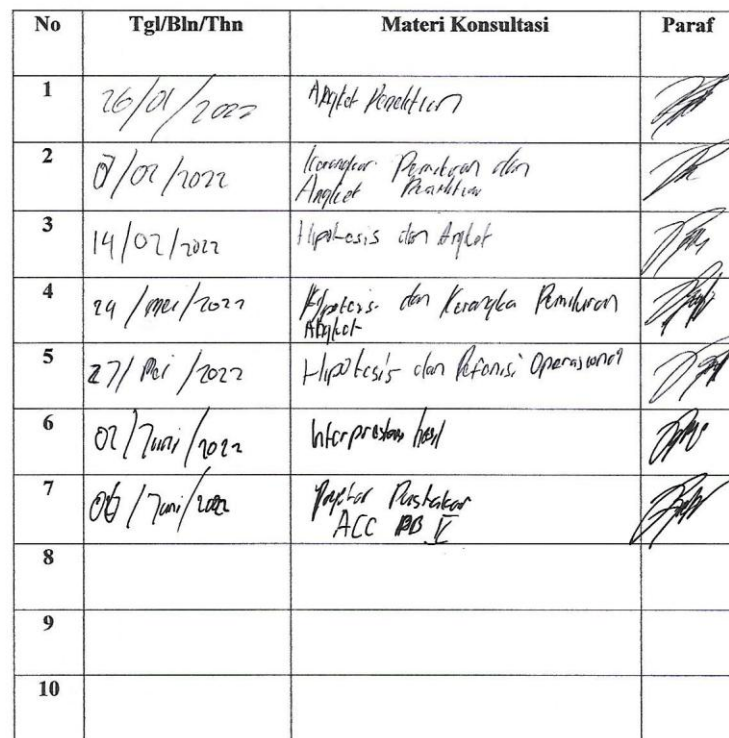 No Tgl/Bln/Thn Materi Konsultasi Paraf
1 26/01/2022 Angket Penelitian
2 07/02/2022 Kerangka Pemikiran dan
Angket Penelitian
3 14/02/2022 Hipotesis dan Angket
4 24/Mei/2022 Hipotesis dan Kerangka Pemikiran
Angket
5 27/Mei/2022 Hipotesis dan Definisi Operasional
6 02/Juni/2022 Interprestasi hasil
7 06/Juni/2022 Daftar Pustaka
ACC BB V
8
9
10